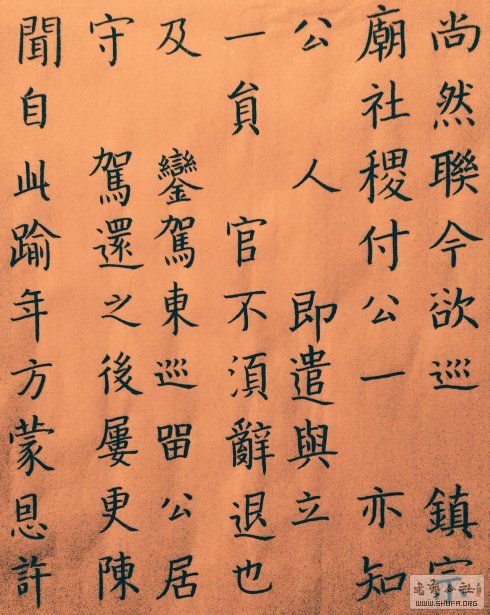 尚然聯今欲巡 鎮宗
廟社稷付公一 亦知
公 人 即遣與立
一貟 官不須辭退也
及 鑾駕東巡留公居
守 駕還之後屢更陳
聞自此踰年方蒙恩許
WWW.SHUFA.ORG